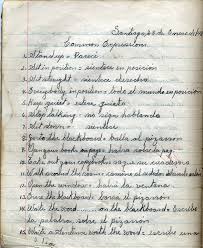 Santiago, 28 de Enero de 19
Common Expressions
1. Stand up = Parece
2. Sit in position = sientese en posicion
3. Sit straight = sientese derecho
4. Everybody in position = todo el mundo en posicion
5. Keep quiet = estese quieto
6. Stop talking = no siga hablando
7. Sit down = sientese
8. Go to the blackboard = baila al pizarron
9. Open your book on page = habra
10. Take out your copybook = saque su cuaderno
11. Walk around the = camine al rededor
12. Open the window = habra la ventana
13. Erase the blackboard = borre el pizarron
14. Write the word on the blackboard = Escriba
la palabra sobre el pizarron
15. Write a sentence with the word = escriba